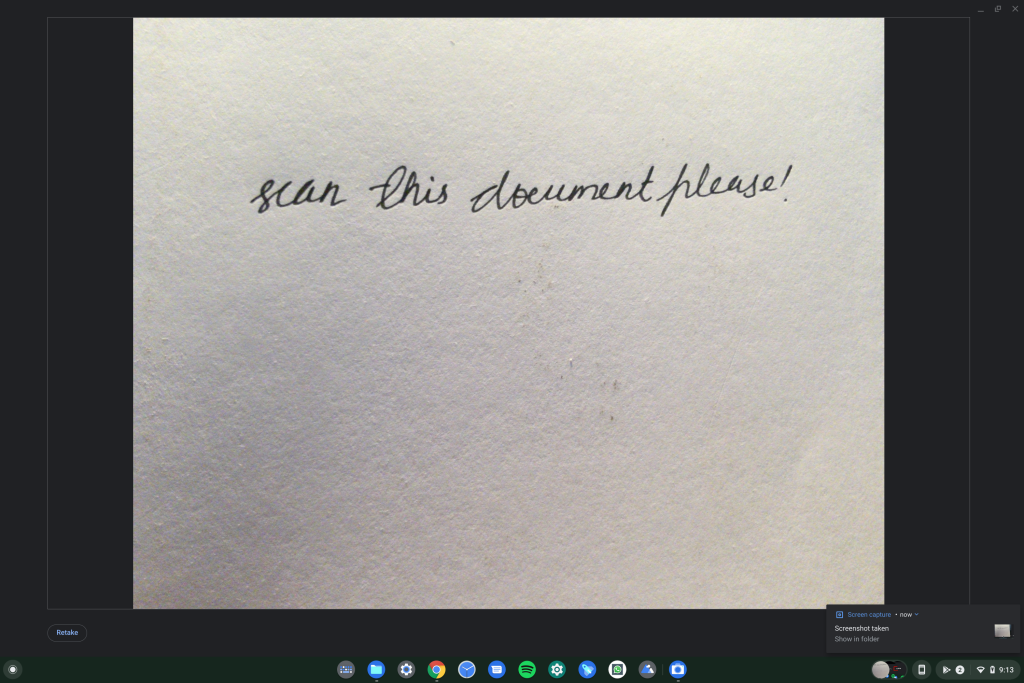 scan this document please!
Retake
Screen capture • now
Screenshot taken
Show in folder
2
9:13